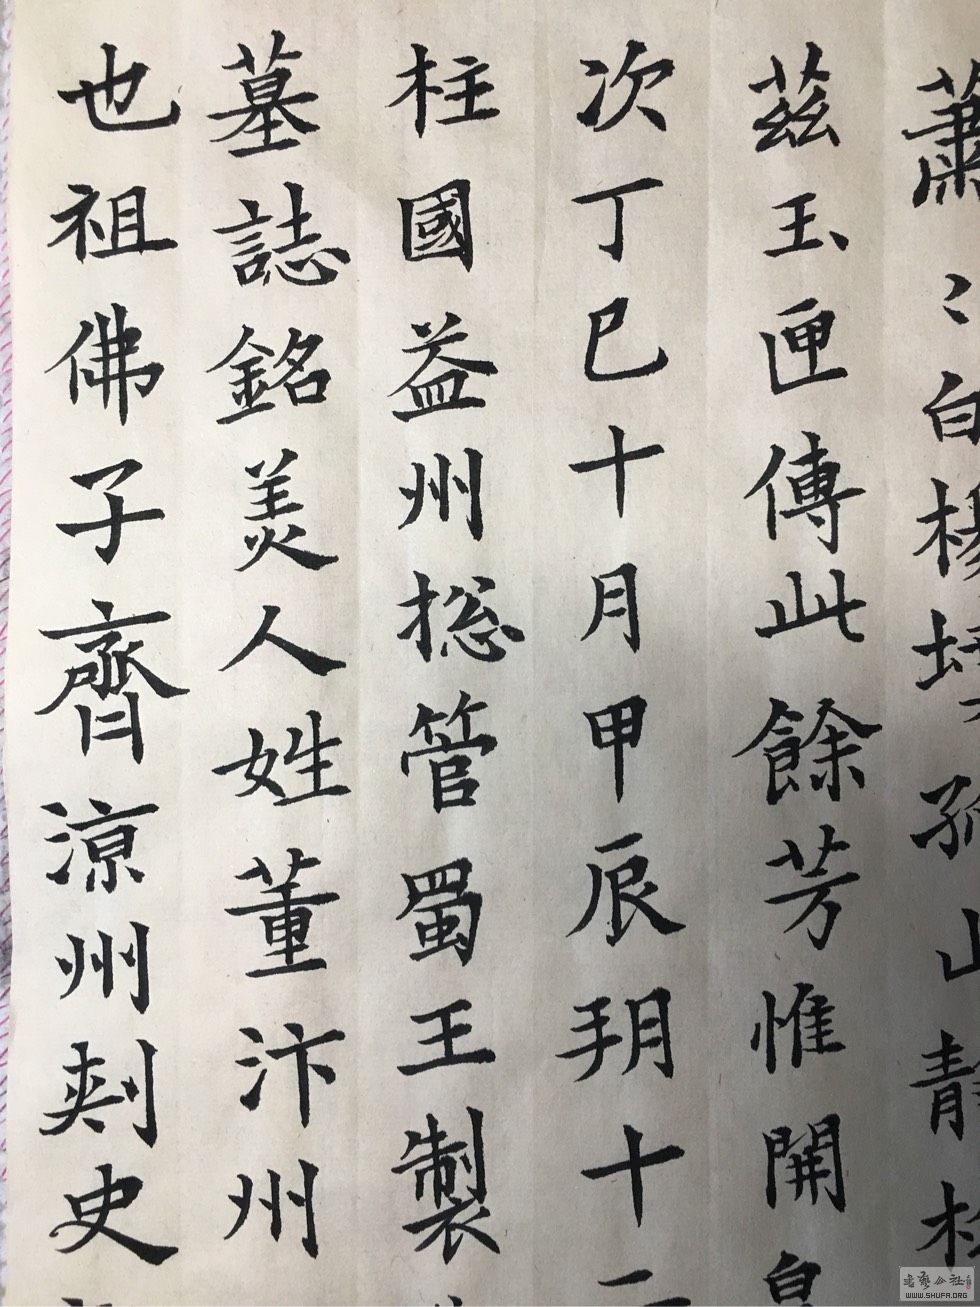 蕭〻白楊
茲玉匣傳此餘芳惟開
次丁巳十月甲辰朔十二
柱國益州総管蜀王製
墓誌銘美人姓董汴州
也祖佛子齊涼州刺史
書藝公社
WWW.SHUFA.ORG